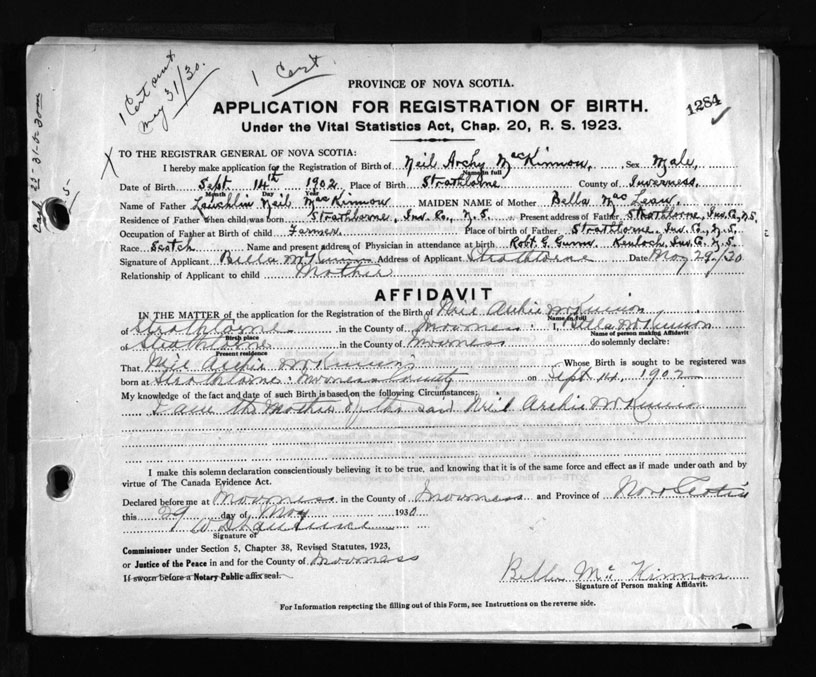 1 Cert sent
May 31/30.
1 Cert.
Cash 22-31-5-30
PROVINCE OF NOVA SCOTIA.
APPLICATION FOR REGISTRATION OF BIRTH.
1284 ✓
Under the Vital Statistics Act, Chap. 20, R. S. 1923.
X TO THE REGISTRAR GENERAL OF NOVA SCOTIA:
I hereby make application for the Registration of Birth of Neil Archy MacKinnon, Sex Male,
Name in full
Date of Birth Sept. 14th 1902 Place of Birth Strathlorne County of Inverness,
Month Day Year
Name of Father Lauchlin Neil MacKinnon MAIDEN NAME of Mother Bella MacLean,
Residence of Father when child was born Strathlorne, Inv. Co., N.S. Present address of Father Strathlorne, Inv. Co., N.S.
Occupation of Father at Birth of child Farmer Place of birth of Father Strathlorne, Inv. Co., N.S.
Race Scotch Name and present address of Physician in attendance at birth Robt. G. Gunn. Kenloch, Inv. Co. N.S.
Signature of Applicant Bella McKinnon Address of Applicant Strathlorne Date May 29/30
Relationship of Applicant to child Mother
AFFIDAVIT
IN THE MATTER of the application for the Registration of the Birth of Neil Archie McKinnon
Name in full
of Strathlorne in the County of Inverness: I, Bella McKinnon
Birth place Name of person making Affidavit
of Strathlorne in the County of Inverness do solemnly declare:
Present residence
That Neil Archie McKinnon Whose Birth is sought to be registered was
born at Strathlorne: Inverness County on Sept 14, 1902
My knowledge of the fact and date of such Birth is based on the following Circumstances:
I am the Mother of the said Neil Archie McKinnon
I make this solemn declaration conscientiously believing it to be true, and knowing that it is of the same force and effect as if made under oath and by
virtue of The Canada Evidence Act.
Declared before me at Inverness in the County of Inverness and Province of Nova Scotia
this 29 day of May 1930
Signature of
Commissioner under Section 5, Chapter 38, Revised Statutes, 1923,
or Justice of the Peace in and for the County of Inverness
If sworn before a Notary Public affix seal.
Bella McKinnon
Signature of Person making Affidavit.
For Information respecting the filling out of this Form, see Instructions on the reverse side.